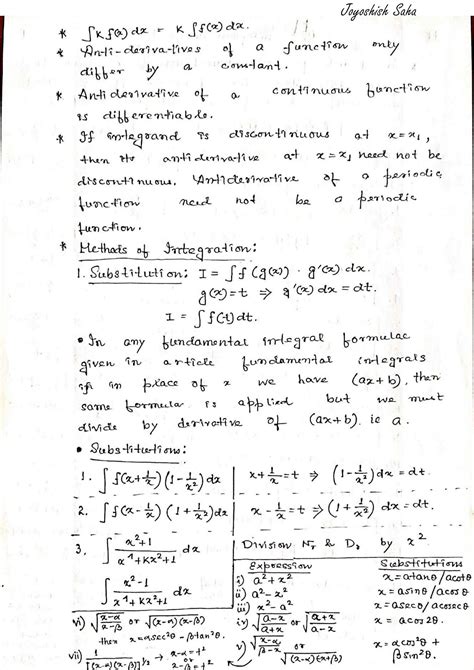 Joyoshish Saha
* ∫K f(x) dx = K ∫f(x) dx.
* Anti-derivatives of a function only
differ by a constant.
* Antiderivative of a continuous function
is differentiable.
* If integrand is discontinuous at x=x₁,
then its antiderivative at x=x₁ need not be
discontinuous. Antiderivative of a periodic
function need not be a periodic
function.
* Methods of Integration:
1. Substitution: I = ∫f(g(x)) · g'(x) dx.
g(x)=t ⇒ g'(x) dx = dt.
I = ∫f(t) dt.
• In any fundamental integral formulae
given in article fundamental integrals
if in place of x we have (ax+b), then
same formula is applied but we must
divide by derivative of (ax+b). ie a.
• Substitutions:
1. ∫f(x+1/x)(1-1/x²) dx | x+1/x=t ⇒ (1-1/x²) dx = dt.
2. ∫f(x-1/x)(1+1/x²) dx | x-1/x=t ⇒ (1+1/x²) dx = dt.
3. ∫(x²+1)/(x⁴+Kx²+1) dx | Division Nr & Dr by x²
∫(x²-1)/(x⁴+Kx²+1) dx
Expression Substitutions
i) a²+x² x=atanθ/acotθ
ii) a²-x² x=asinθ/acosθ
iii) x²-a² x=asecθ/acosecθ
iv) √((a-x)/(a+x)) or √((a+x)/(a-x)) x=acos2θ.
v) √((x-α)/(β-x)) or √((x-α)(β-x)) x=αcos²θ+βsin²θ.
vi) √((x-α)/(x-β)) or √((x-α)(x-β))
then x=αsec²θ-βtan²θ.